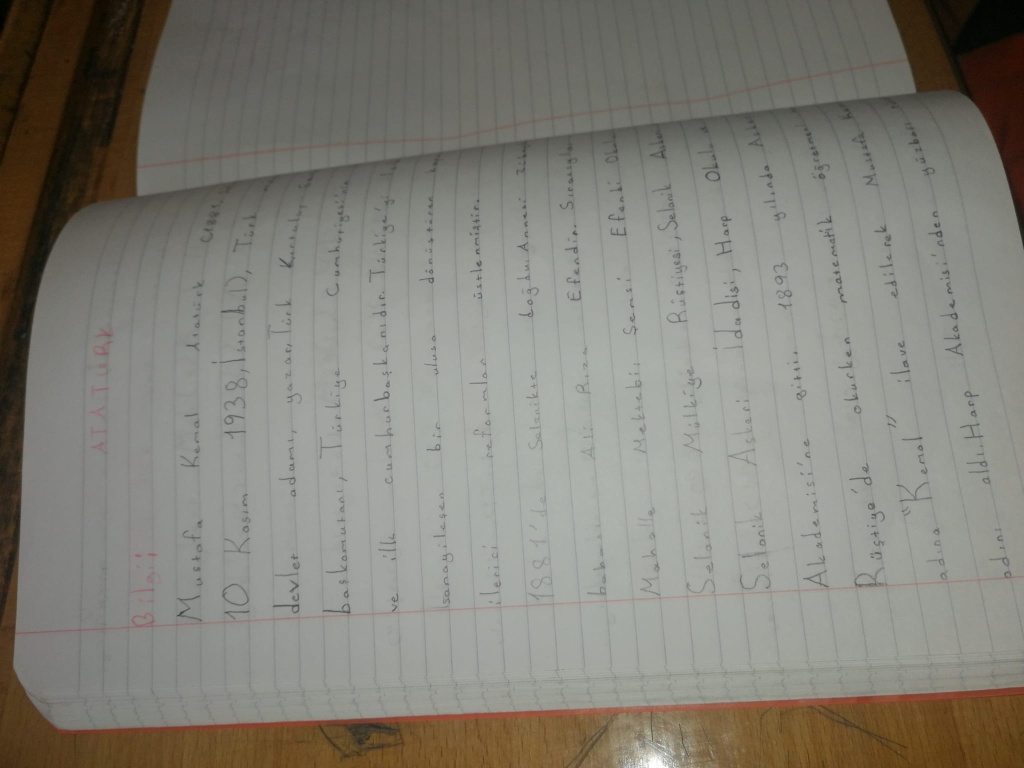 ATATÜRK
Bilgi;
Mustafa Kemal Atatürk (1881,
10 Kasım 1938, İstanbul), Türk
devlet adamı, yazar. Türk Kurtuluş
başkomutanı, Türkiye Cumhuriyeti'nin
ve ilk cumhurbaşkanıdır. Türkiye'yi
sanayileşen bir ulusa dönüştüren
ilerici reformlar üstlenmiştir.
1881'de Selanikte doğdu. Annesi
babası Ali Rıza Efendi'dir. Sırasıyla
Mahalle Mektebi, Şemsi Efendi Okulu
Selanik Mülkiye Rüştiyesi, Selanik Askeri
Selanik Askeri İdadisi, Harp Okulu
Akademisi'ne gitti. 1893 yılında Askeri
Rüştiye'de okurken matematik öğretmeni
adına "Kemal" ilave edilerek Mustafa
adını aldı. Harp Akademisi'nden yüzbaşı